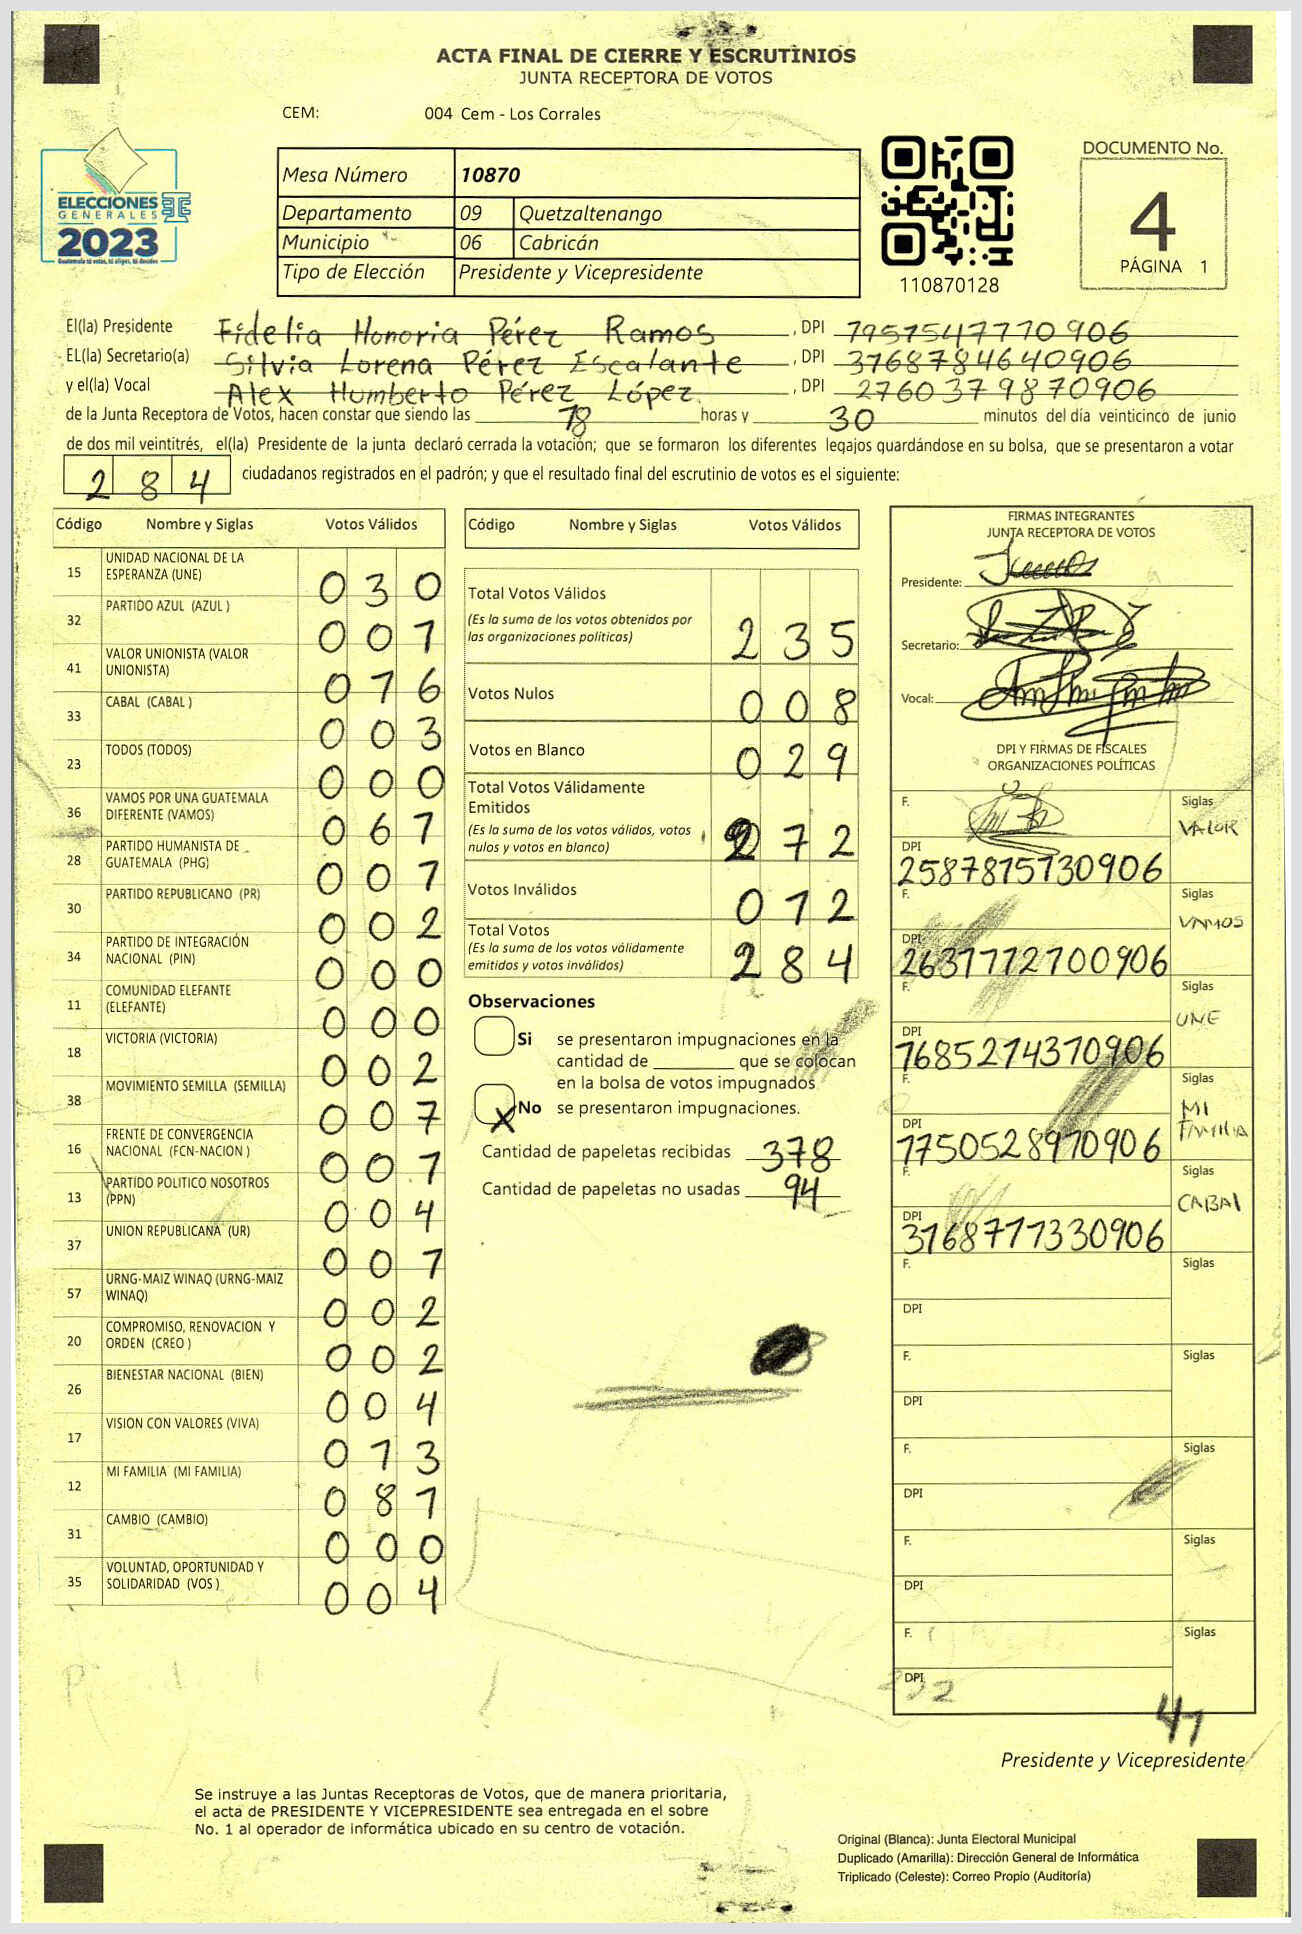 ACTA FINAL DE CIERRE Y ESCRUTINIOS
JUNTA RECEPTORA DE VOTOS
CEM: 004 Cem - Los Corrales
ELECCIONES
GENERALES
2023
Guatemala tú votas, tú eliges, tú decides
Mesa Número 10870
Departamento 09 Quetzaltenango
Municipio 06 Cabricán
Tipo de Elección Presidente y Vicepresidente
110870128
DOCUMENTO No.
4
PÁGINA 1
El(la) Presidente Fidelia Honoria Pérez Ramos, DPI 1951547110906
EL(la) Secretario(a) Silvia Lorena Pérez Escalante, DPI 3168784640906
y el(la) Vocal Alex Humberto Pérez López, DPI 2760379870906
de la Junta Receptora de Votos, hacen constar que siendo las 18 horas y 30 minutos del día veinticinco de junio
de dos mil veintitrés, el(la) Presidente de la junta declaró cerrada la votación; que se formaron los diferentes legajos guardándose en su bolsa, que se presentaron a votar
284 ciudadanos registrados en el padrón; y que el resultado final del escrutinio de votos es el siguiente:
Código Nombre y Siglas Votos Válidos
15 UNIDAD NACIONAL DE LA ESPERANZA (UNE) 030
32 PARTIDO AZUL (AZUL ) 001
41 VALOR UNIONISTA (VALOR UNIONISTA) 016
33 CABAL (CABAL ) 003
23 TODOS (TODOS) 000
36 VAMOS POR UNA GUATEMALA DIFERENTE (VAMOS) 061
28 PARTIDO HUMANISTA DE GUATEMALA (PHG) 001
30 PARTIDO REPUBLICANO (PR) 002
34 PARTIDO DE INTEGRACIÓN NACIONAL (PIN) 000
11 COMUNIDAD ELEFANTE (ELEFANTE) 000
18 VICTORIA (VICTORIA) 002
38 MOVIMIENTO SEMILLA (SEMILLA) 007
16 FRENTE DE CONVERGENCIA NACIONAL (FCN-NACION ) 001
13 PARTIDO POLITICO NOSOTROS (PPN) 004
37 UNION REPUBLICANA (UR) 001
57 URNG-MAIZ WINAQ (URNG-MAIZ WINAQ) 002
20 COMPROMISO, RENOVACION Y ORDEN (CREO ) 002
26 BIENESTAR NACIONAL (BIEN) 004
17 VISION CON VALORES (VIVA) 013
12 MI FAMILIA (MI FAMILIA) 081
31 CAMBIO (CAMBIO) 000
35 VOLUNTAD, OPORTUNIDAD Y SOLIDARIDAD (VOS ) 004
Código Nombre y Siglas Votos Válidos
Total Votos Válidos
(Es la suma de los votos obtenidos por
las organizaciones politicas) 235
Votos Nulos 008
Votos en Blanco 029
Total Votos Válidamente
Emitidos
(Es la suma de los votos válidos, votos
nulos y votos en blanco) 272
Votos Inválidos 012
Total Votos
(Es la suma de los votos válidamente
emitidos y votos inválidos) 284
Observaciones
Si se presentaron impugnaciones en la
cantidad de ________ que se colocan
en la bolsa de votos impugnados
X No se presentaron impugnaciones.
Cantidad de papeletas recibidas 378
Cantidad de papeletas no usadas 94
FIRMAS INTEGRANTES
JUNTA RECEPTORA DE VOTOS
Presidente:
Secretario:
Vocal:
DPI Y FIRMAS DE FISCALES
ORGANIZACIONES POLÍTICAS
F. Siglas VALOR
DPI 2587815130906
F. Siglas VAMOS
DPI 2631112100906
F. Siglas UNE
DPI 1685214310906
F. Siglas MI FAMILIA
DPI 1750528910906
F. Siglas CABAL
DPI 3168711330906
F. Siglas
DPI
F. Siglas
DPI
F. Siglas
DPI
F. Siglas
DPI
F. Siglas
DPI
41
Presidente y Vicepresidente
Se instruye a las Juntas Receptoras de Votos, que de manera prioritaria,
el acta de PRESIDENTE Y VICEPRESIDENTE sea entregada en el sobre
No. 1 al operador de informática ubicado en su centro de votación.
Original (Blanca): Junta Electoral Municipal
Duplicado (Amarilla): Dirección General de Informática
Triplicado (Celeste): Correo Propio (Auditoría)